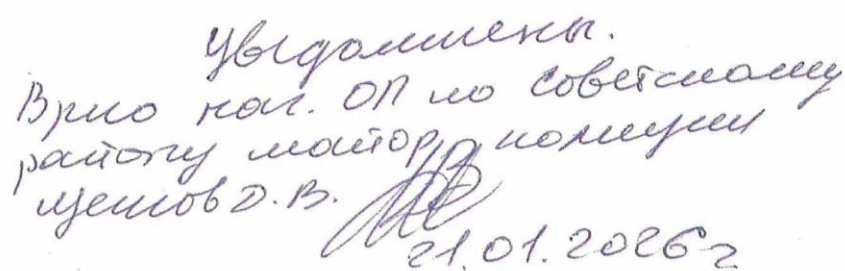 Уведомлены.
Врио нач. ОП по Советскому
району майор полиции
Д.В.
21.01.2026г